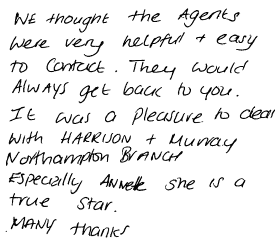 WE thought the Agents
were very helpful + easy
to Contact. They would
ALWAYS get back to you.
It was a Pleasure to deal
with HARRISON + Murray
Northampton BRANCH
Especially Annette she is a
true Star.
MANY thanks